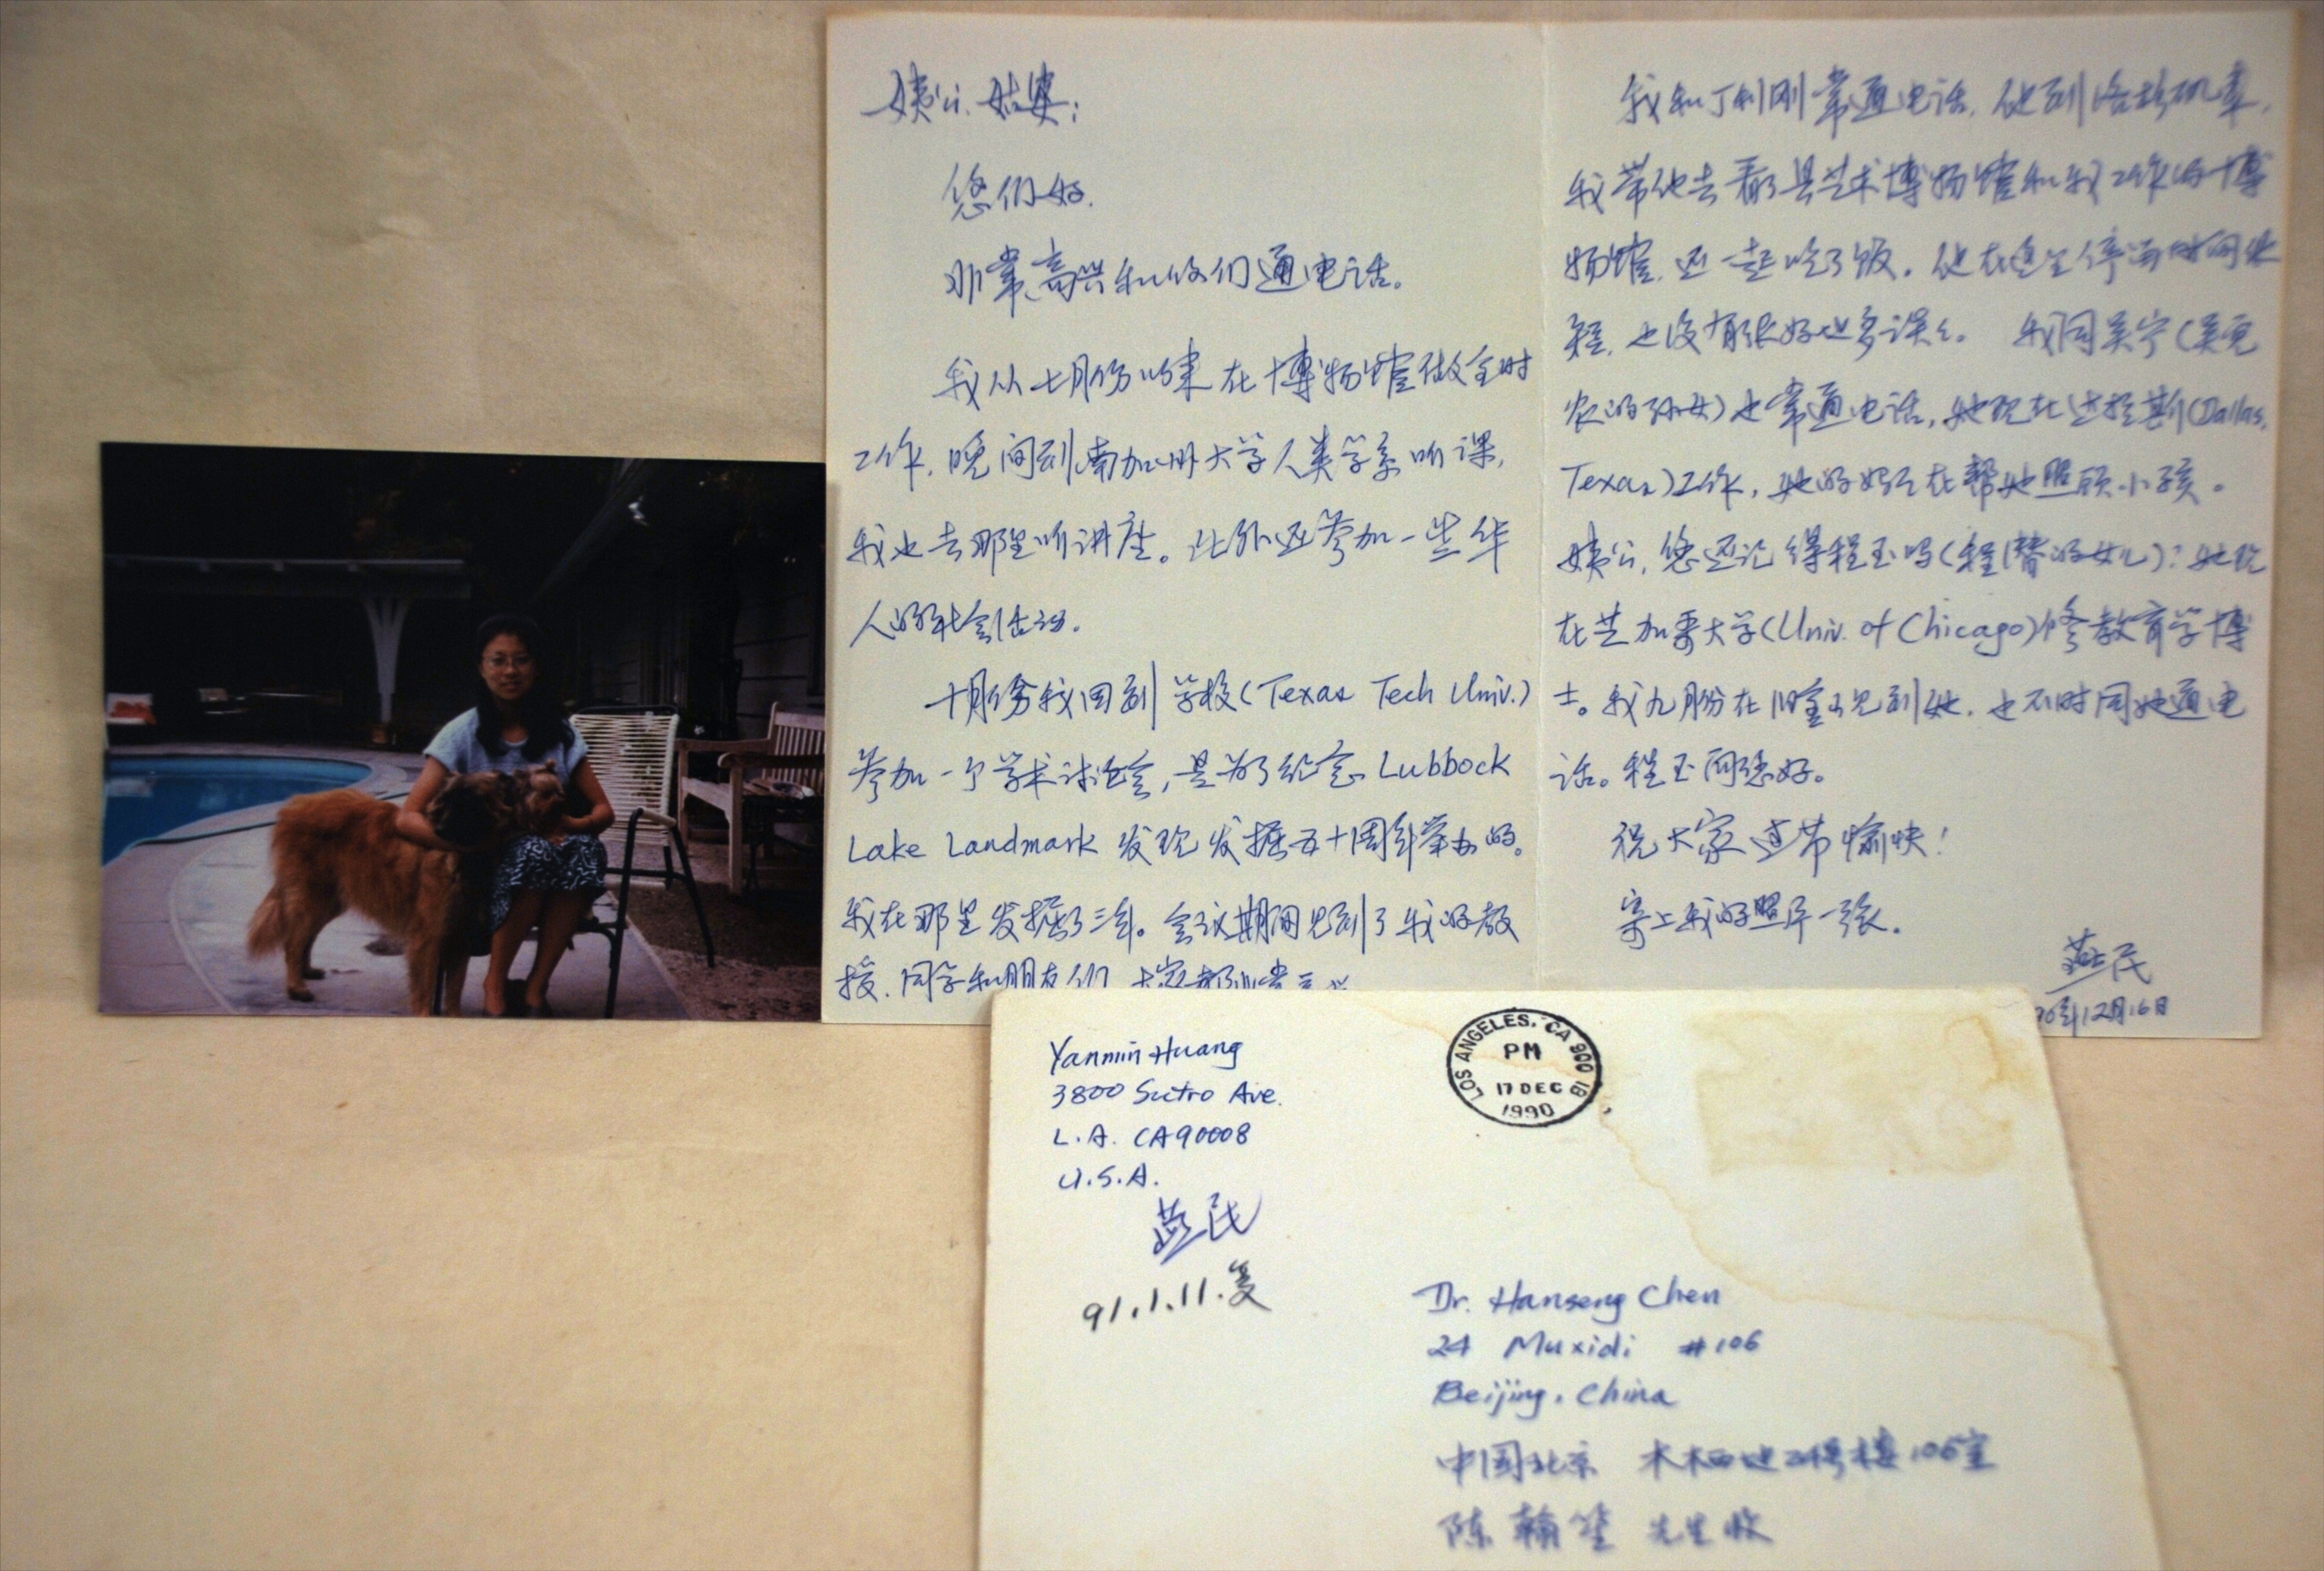 姨公、姑婆：
您们好.
非常高兴和你们通电话。
我从七月份以来在博物馆做全时
工作，晚间到南加州大学人类学系听课，
我也去那里听讲座。此外还参加一些华
人的社会活动.
十月份我回到学校(Texas Tech Univ.)
参加一个学术讨论会，是为了纪念 Lubbock
Lake Landmark 发现发掘五十周年举办的。
我在那里发掘了三年。会议期间见到了我的教
授、同学和朋友们
我和丁利刚常通电话，他到洛杉矶来，
我带他去看了县艺术博物馆和我工作的博
物馆，还一起吃了饭。他在这里停留时间
我同吴宁(吴
的孙女)也常通电话，她现在达拉斯(Dallas,
Texas)工作，她的妈妈在帮她照顾小孩。
姨公，您还记得程玉吗(程 的女儿)？她现
在芝加哥大学(Univ. of Chicago)修教育学博
士。我九月份在旧金山见到她，也不时同她通电
话。程玉问您好。
祝大家过节愉快！
寄上我的照片一张。
燕民
90年12月16日
Yanmin Huang
3800 Sutro Ave.
L.A. CA90008
U.S.A.
燕民
91.1.11.复
LOS ANGELES, CA 900
PM
17 DEC
1990
Dr. Hanseng Chen
24 Muxidi #106
Beijing, China
中国北京 木樨地24号楼106室
陈翰笙 先生收